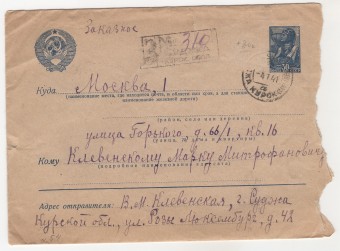 Заказное
З №
316
30
-4.1.41
Куда Москва, 1
(наименование места, где находится почта, и области или края, а для станции
наименование железной дороги)
(район, село или деревня)
улица Горького, д. 66/1, кв. 16
Кому Клевенскому Марку Митрофановичу
(подробное наименование адресата)
Адрес отправителя: В.М. Клевенская, г. Суджа
Курской обл., ул. Розы Люксембург, д. 42